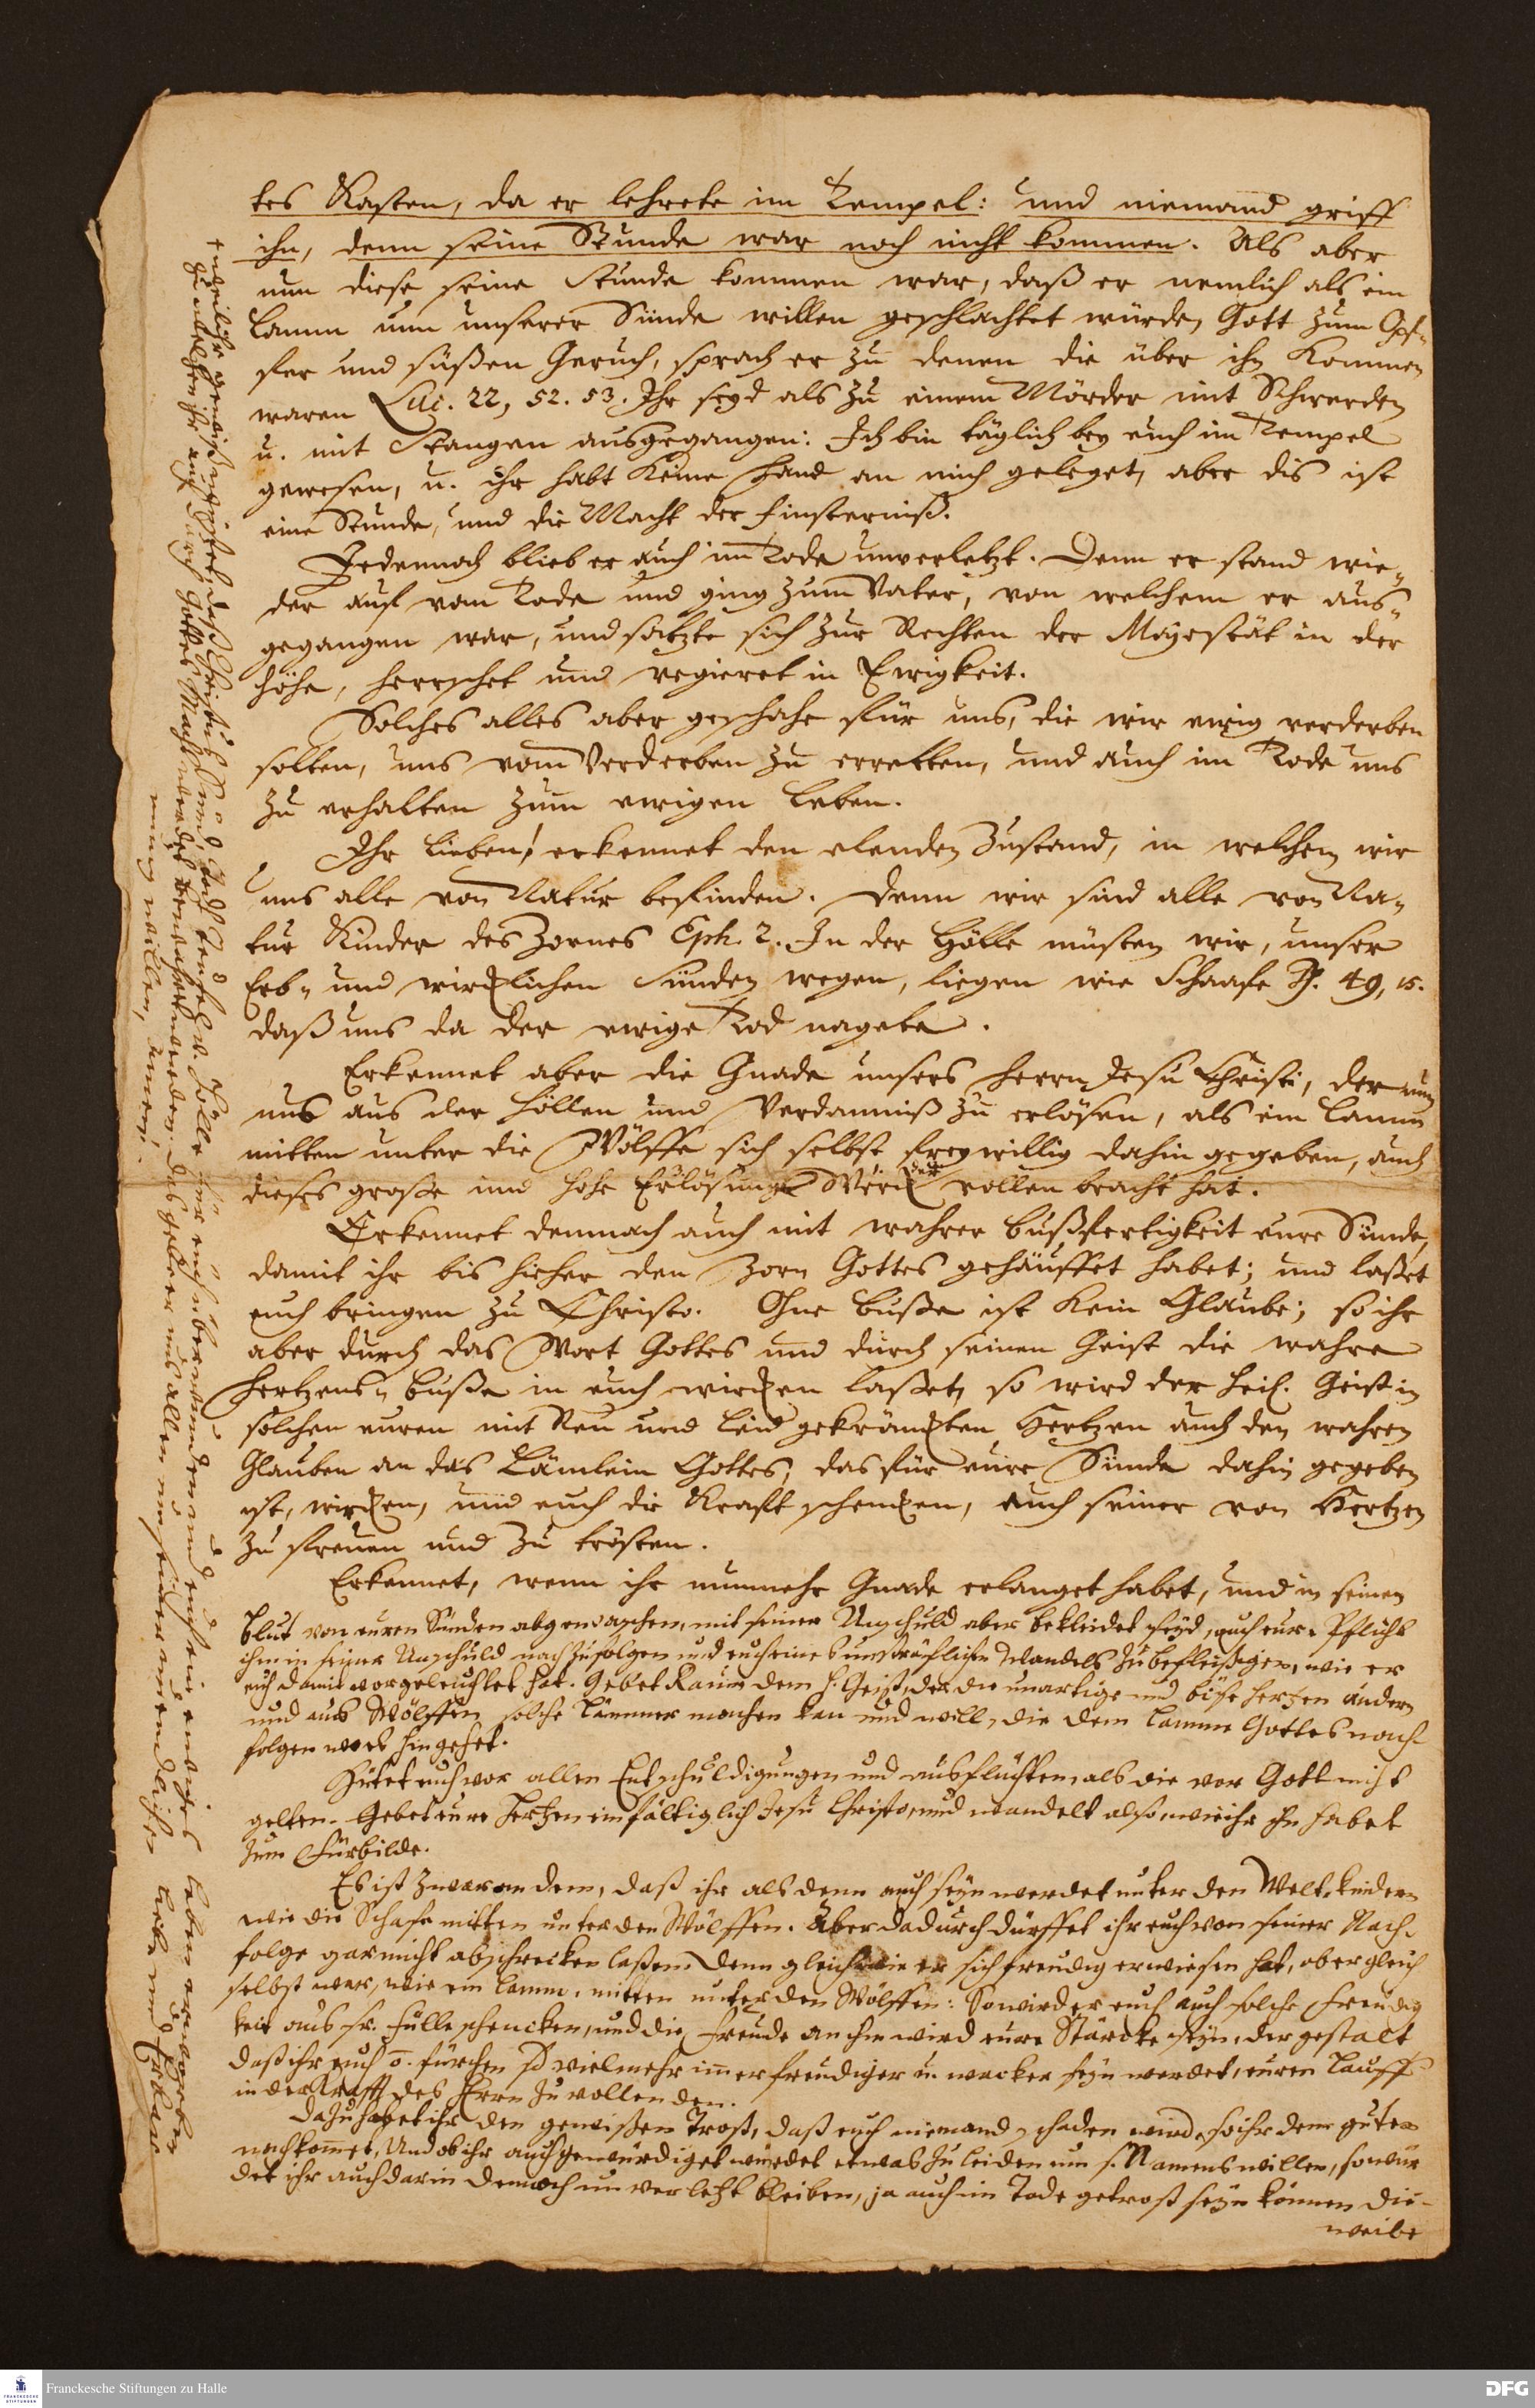 tes Kasten, da er lehrete im Tempel: und niemand griff
ihn, denn seine Stunde war noch nicht kommen. Als aber
nun diese seine Stunde kommen war, daß er nemlich als ein
Lamm um unserer Sünde willen geschlachtet würde, Gott zum Opf-
fer und süßen Geruch, sprach er zu denen die über ihn kommen
waren Luc. 22, 52. 53. Ihr seyd als zu einem Mörder mit Schwerden
u. mit Stangen ausgegangen: Ich bin täglich bey euch im Tempel
gewesen, u. ihr habt keine Hand an mich geleget, aber dis ist
eure Stunde, und die Macht der Finsterniß.
Jedennoch blieb er auch im Tode unverletzt. Denn er stand wie-
der auf vom Tode und ging zum Vater, von welchem er aus-
gegangen war, und satzte sich zur Rechten der Majestät in der
Höhe, herrschet und regieret in Ewigkeit.
Solches alles aber geschahe für uns, die wir ewig verderben
solten, uns vom Verderben zu erretten, und auch im Tode uns
zu erhalten zum ewigen Leben.
Ihr Lieben! erkennet den elenden Zustand, in welchem wir
uns alle von Natur befinden. Denn wir sind alle von Na-
tur Kinder des Zornes Eph. 2. In der Hölle müsten wir, unser
Erb- und wircklichen Sünden wegen, liegen wie Schaafe Ps. 49, 15.
daß uns da der ewige Tod nagete.
Erkennet aber die Gnade unsers Herrn Jesu Christi, der um
uns aus der Höllen und Verdamniß zu erlösen, als ein Lamm
mitten unter die Wölffe sich selbst freywillig dahin gegeben, auch
dieses grosse und hohe Erlösungs Werck vollenbracht hat.
Erkennet demnach auch mit wahrer Bußfertigkeit eure Sünde,
damit ihr bis hieher den Zorn Gottes gehäuffet habet; und laßet
euch bringen zu Christo. Ohne Buße ist kein Glaube; so ihr
aber durch das Wort Gottes und durch seinen Geist die wahre
Hertzens-Buße in euch wircken laßet, so wird der Heil. Geist in
solchen euren mit Reu und Leid gekränckten Hertzen auch den wahren
Glauben an das Lämlein Gottes, das für eure Sünde dahin gegeben
ist, wircken, und euch die Kraft schencken, euch seiner von Hertzen
zu freuen und zu trösten.
Erkennet, wenn ihr nunmehr Gnade erlanget habet, und in seinem
Blut von euren Sünden abgewaschen, mit seiner Unschuld aber bekleidet seyd, auch eure Pflicht
ihm in seiner Unschuld nachzufolgen und euch eines unsträflichen Wandels zu befleißigen, wie er
euch damit vorgeleuchtet hat. Gebet Raum dem H. Geist, der die unartige und böse Hertzen ändern
und aus Wölffen solche Lämmer machen kan und will, die dem Lamme Gottes nach-
folgen wo es hingehet.
Hütet euch vor allen Entschuldigungen und Ausflüchten, als die vor Gott nicht
gelten. Gebet eure Hertzen einfältiglich Jesu Christo, und wandelt also, wie ihr ihn habet
zum Fürbilde.
Es ist zwar an dem, daß ihr alsdenn auch seyn werdet unter den Welt-kindern
wie die Schafe mitten unter den Wölffen. Aber dadurch dürffet ihr euch von seiner Nach-
folge gar nicht abschrecken laßen. Denn gleichwie er sich freudig erwiesen hat, ob er gleich
selbst war, wie ein Lamm, mitten unter den Wölffen: So wird er euch auch solche Freudig
keit aus sr. Fülle schencken, und die Freude an ihm wird eure Stärcke seyn, dergestalt
daß ihr euch õ. fürchten sd vielmehr im̄er freudiger u. wacker seyn werdet, euren Lauff
in der Krafft des Herrn zu vollenden.
Dazu habet ihr den gewißen Trost, daß euch niemand schaden wird, so ihr dem guten
nachkom̄et, Und ob ihr auch gewürdiget würdet etwas zu leiden um s. Namens willen, so wür
det ihr auch darin dennoch unverletzt bleiben, ja auch im Tode getrost seyn können die-
weil
+ weil ihr gewiß versichert, daß Christus Sünd, Todt, Teufel u. Hölle für euch überwunden und euch ein ewiges Leben erworben
zu welchem ihr auch durch Gottes Macht werdet bewahret werden. Das gebe er uns allen um seiner unendlichen Liebe und Erbar-
mung willen, Amen!
Franckesche Stiftungen zu Halle
DFG